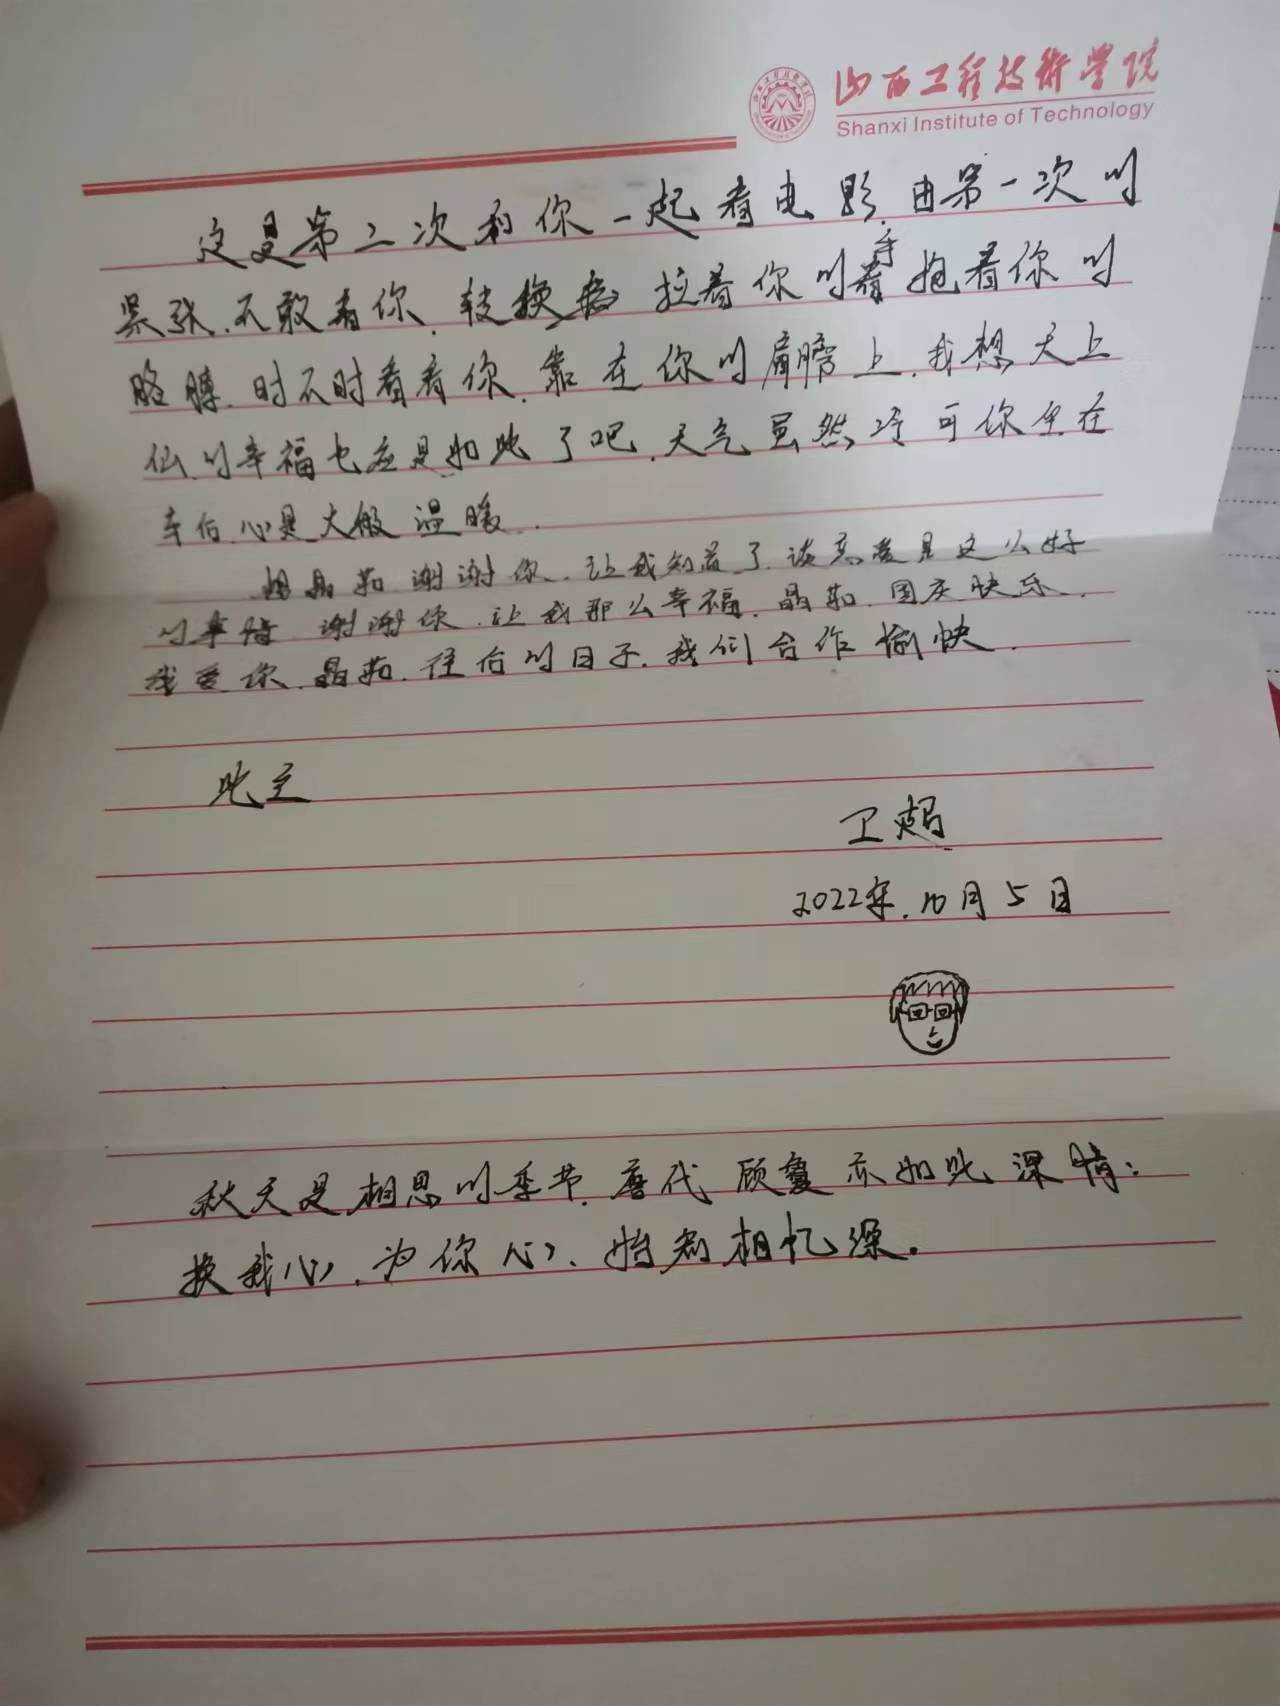 山西工程技术学院
Shanxi Institute of Technology
这是第二次和你一起看电影.由第一次的
紧张.不敢看你.转换成拉着你的手抱着你的
胳膊.时不时看看你.靠在你的肩膀上.我想天上
仙的幸福也应是如此了吧.天气虽然冷可你坐在
车后.心是火般温暖.
晶茹.谢谢你.让我知道了.谈恋爱是这么好
的事情.谢谢你.让我那么幸福.晶茹.国庆快乐.
我爱你.晶茹.往后的日子.我们合作愉快.
此至
卫超
2022年.10月5日
秋天是相思的季节.唐代顾敻亦如此深情:
换我心.为你心、始知相忆深.